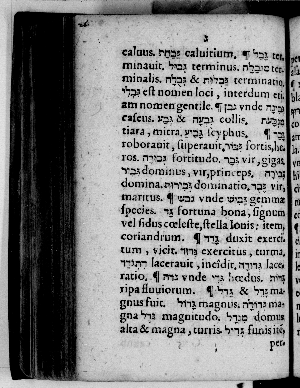 ג
caluus. גבחת caluitium. ¶ גבל ter
minauit. גבול terminus. מגבלה ter
minalis. גבלות & גבלה terminatio,
גבלי est nomen loci, interdum eti
am nomen gentile. ¶ גבן vnde גבינה
caseus. גבעה & גבע collis. מגבעת
tiara, mitra, גביע scyphus. ¶ גבר
roborauit, superauit, גבור fortis, he
ros. גבורה fortitudo. גבר vir, gigas,
גביר dominus, vir, princeps. גבירה
domina. גברות dominatio, גבר vir,
maritus. ¶ גבש vnde גביש gemmæ
species. גד fortuna bona, signum
vel sidus cœleste, stella Ionis; item,
coriandrum. ¶ גדד duxit exerci
tum, vicit. גדוד exercitus, turma.
התגדד lacerauit, incidit. גדודה lace
ratio. ¶ גדה vnde גדי hœdus. גדות
ripæ fluuiorum. ¶ גדל & גדל ma
gnus fuit. גדול magnus. גדולה ma
gna גדל magnitudo. מגדל domus
alta & magna, turris. גדיל funis ¶ ité,
per-